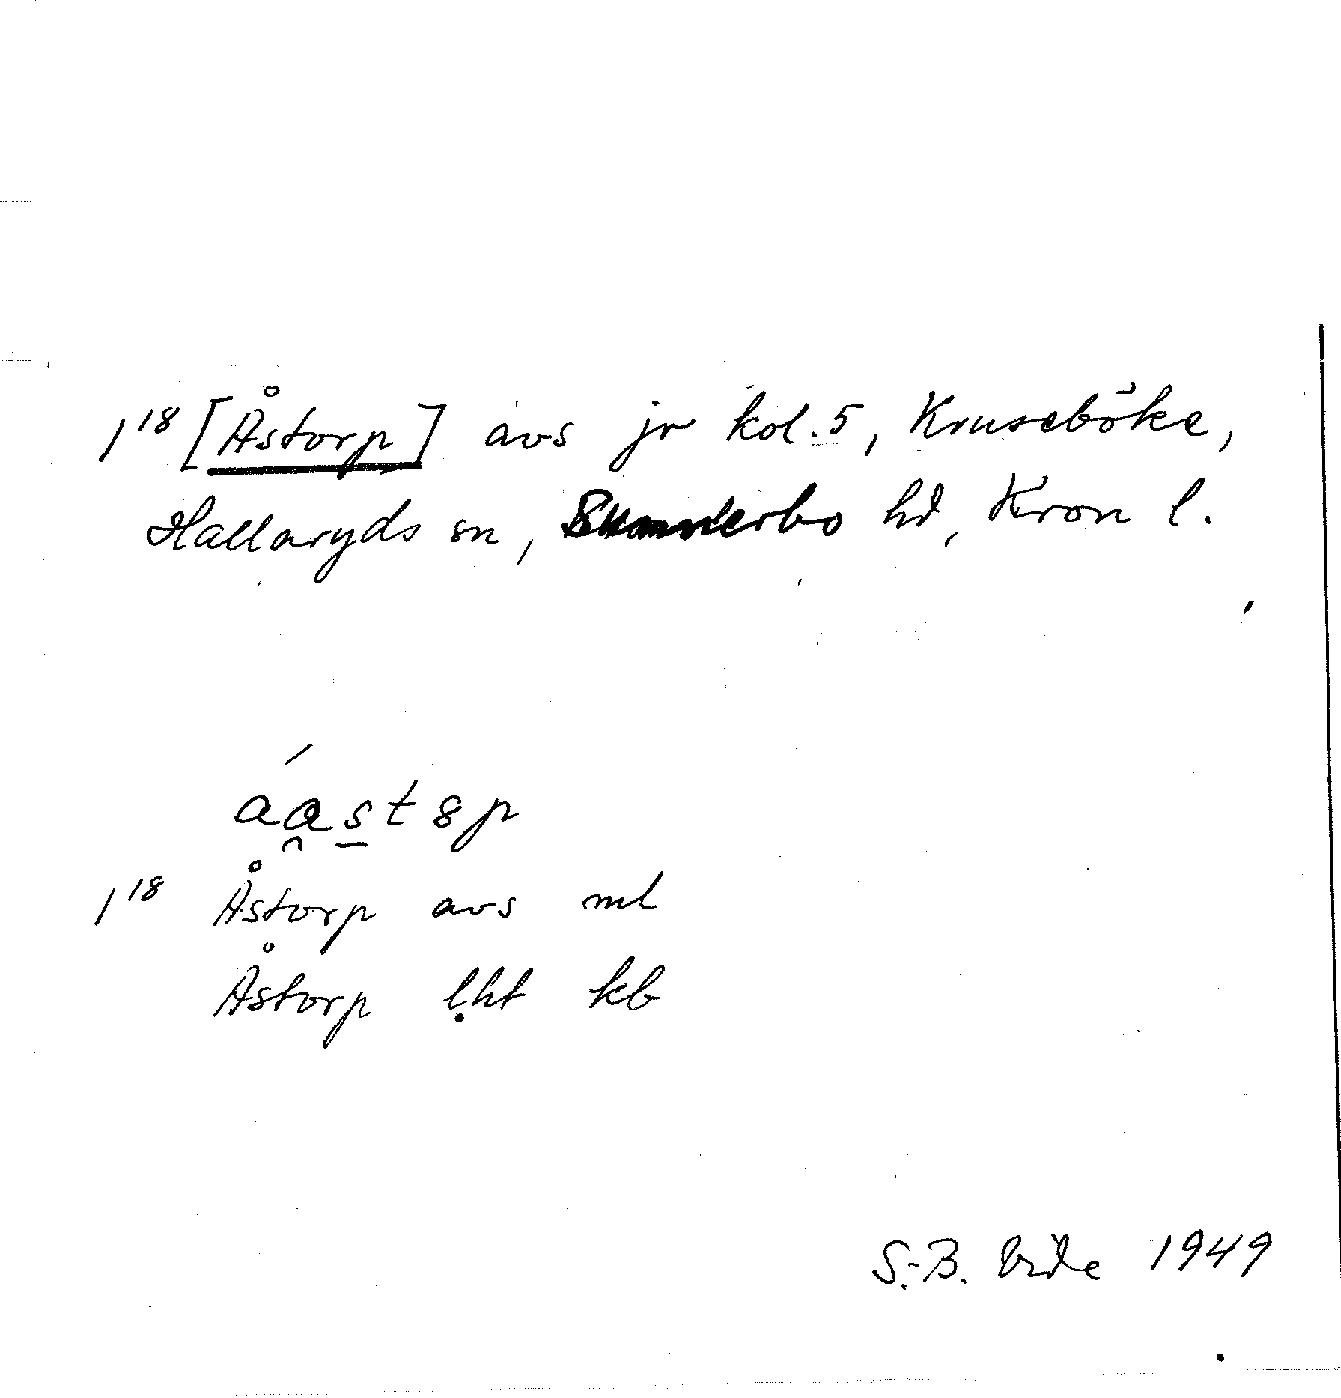 1¹⁸ [Åstorp] avs jr kol. 5, Kruseböke,
Hallaryds sn, Sunnerbo hd, Kron l.
aastsp
1¹⁸ Åstorp avs ml
Åstorp lht kb
S.-B. 1949